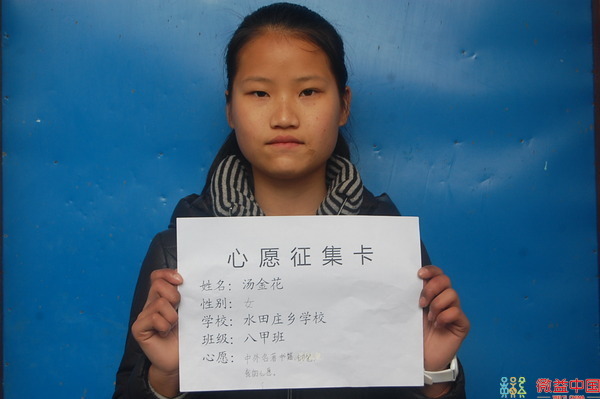 心愿征集卡
姓名：汤金花
性别：女
学校：水田庄乡学校
班级：八甲班
心愿：中外名著书籍
微益中国